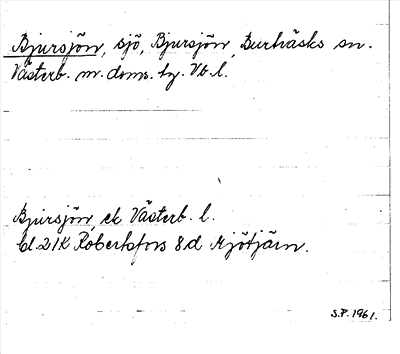 Bjursjön, sjö, Bjursjön, Burträsks sn.
Västerb. n. doms. hg. Vb. l.
Bjursjön, ek Västerb. l.
bl. 21K Robertsfors 8d Mjötjärn.
S.P. 1961.